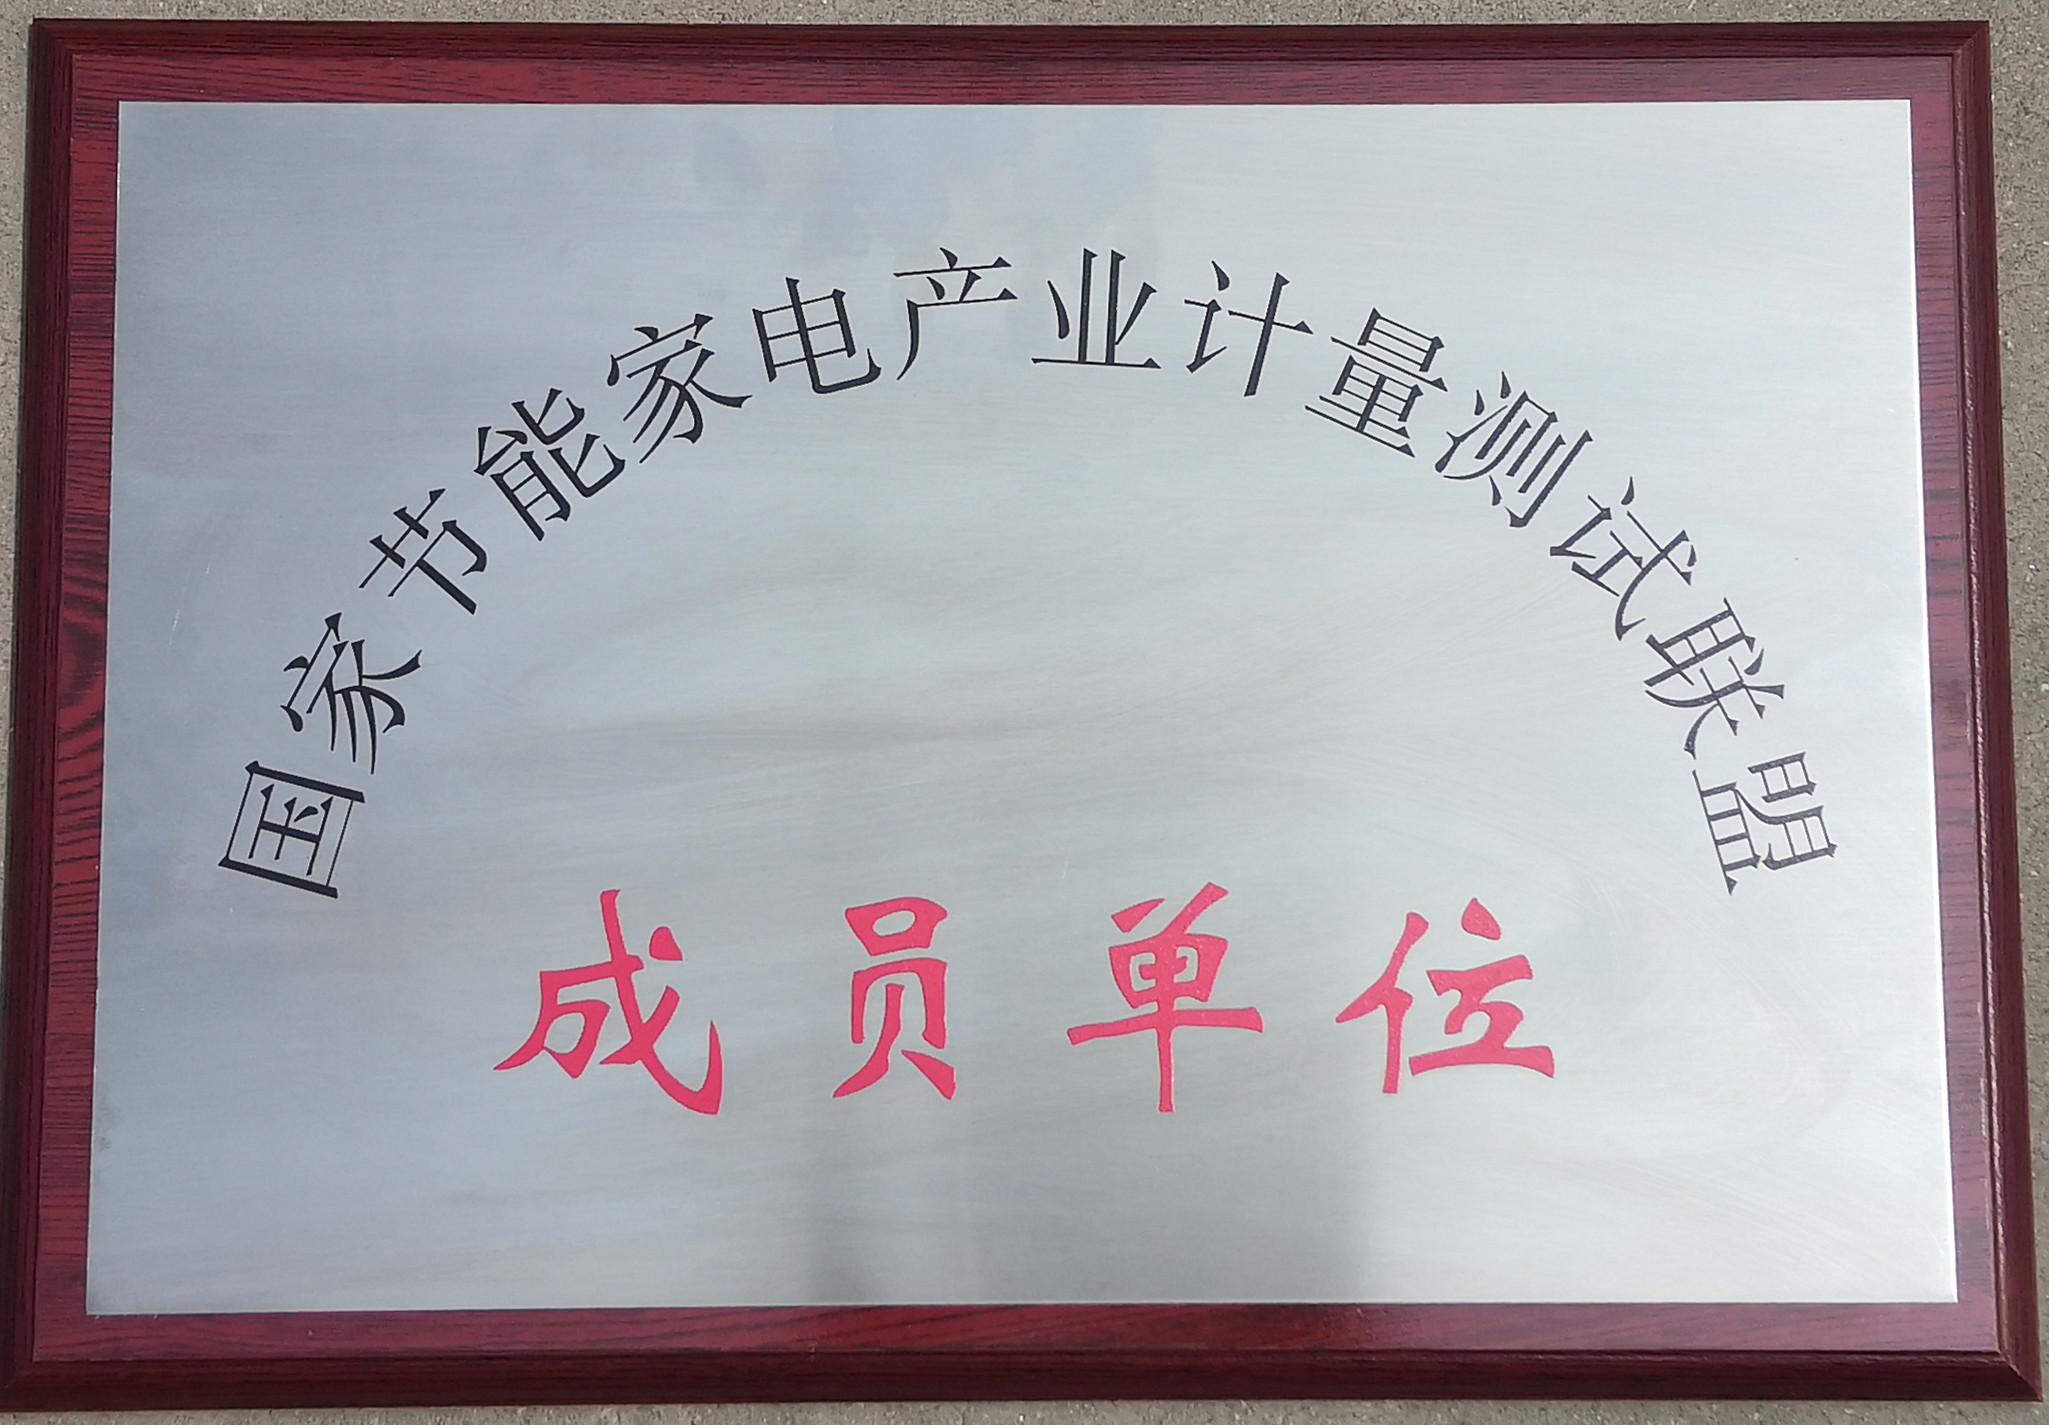 国家节能家电产业计量测试联盟
成员单位